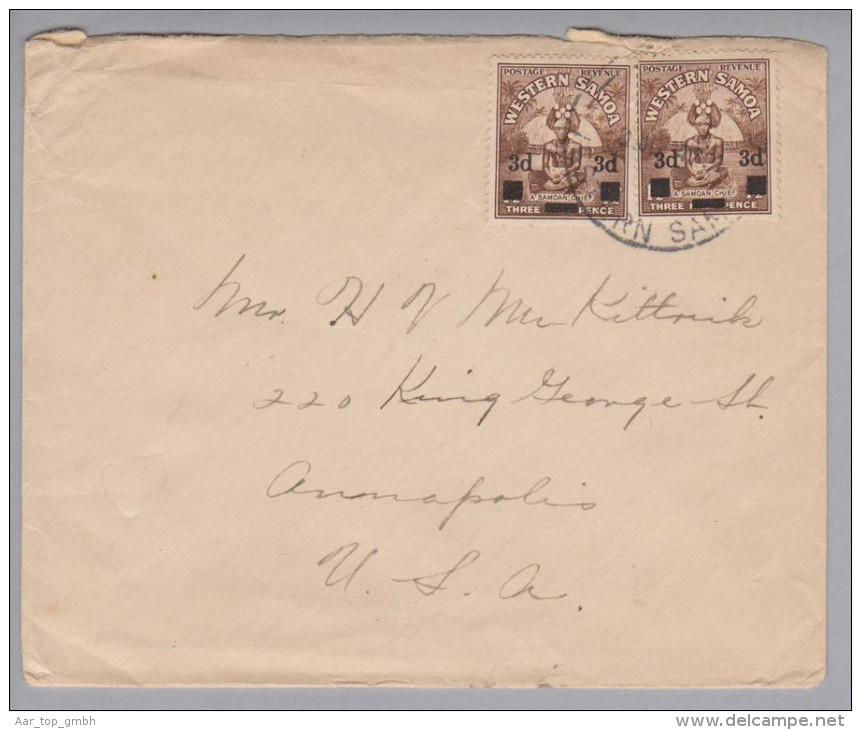 POSTAGE REVENUE
WESTERN SAMOA
3d 3d
A SAMOAN CHIEF
THREE PENCE
POSTAGE REVENUE
WESTERN SAMOA
3d 3d
A SAMOAN CHIEF
THREE PENCE
RN SAM
Mr. H V McKittrick
220 King George St.
Annapolis
U. S. A.
Aar_top_gmbh
www.delcampe.net